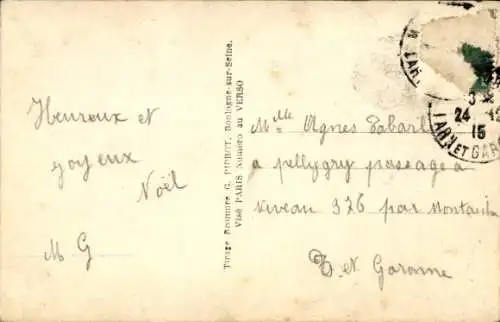 Heureux et
joyeux
Noël
M G
Tirage Bromure G. PIPROT, Boulogne-sur-Seine.
Visé PARIS Numéro au VERSO
Mlle Agnes
a pellygry passage à
niveau 326 par
T. et Garonne
24 - 12
15
TARN ET GAR